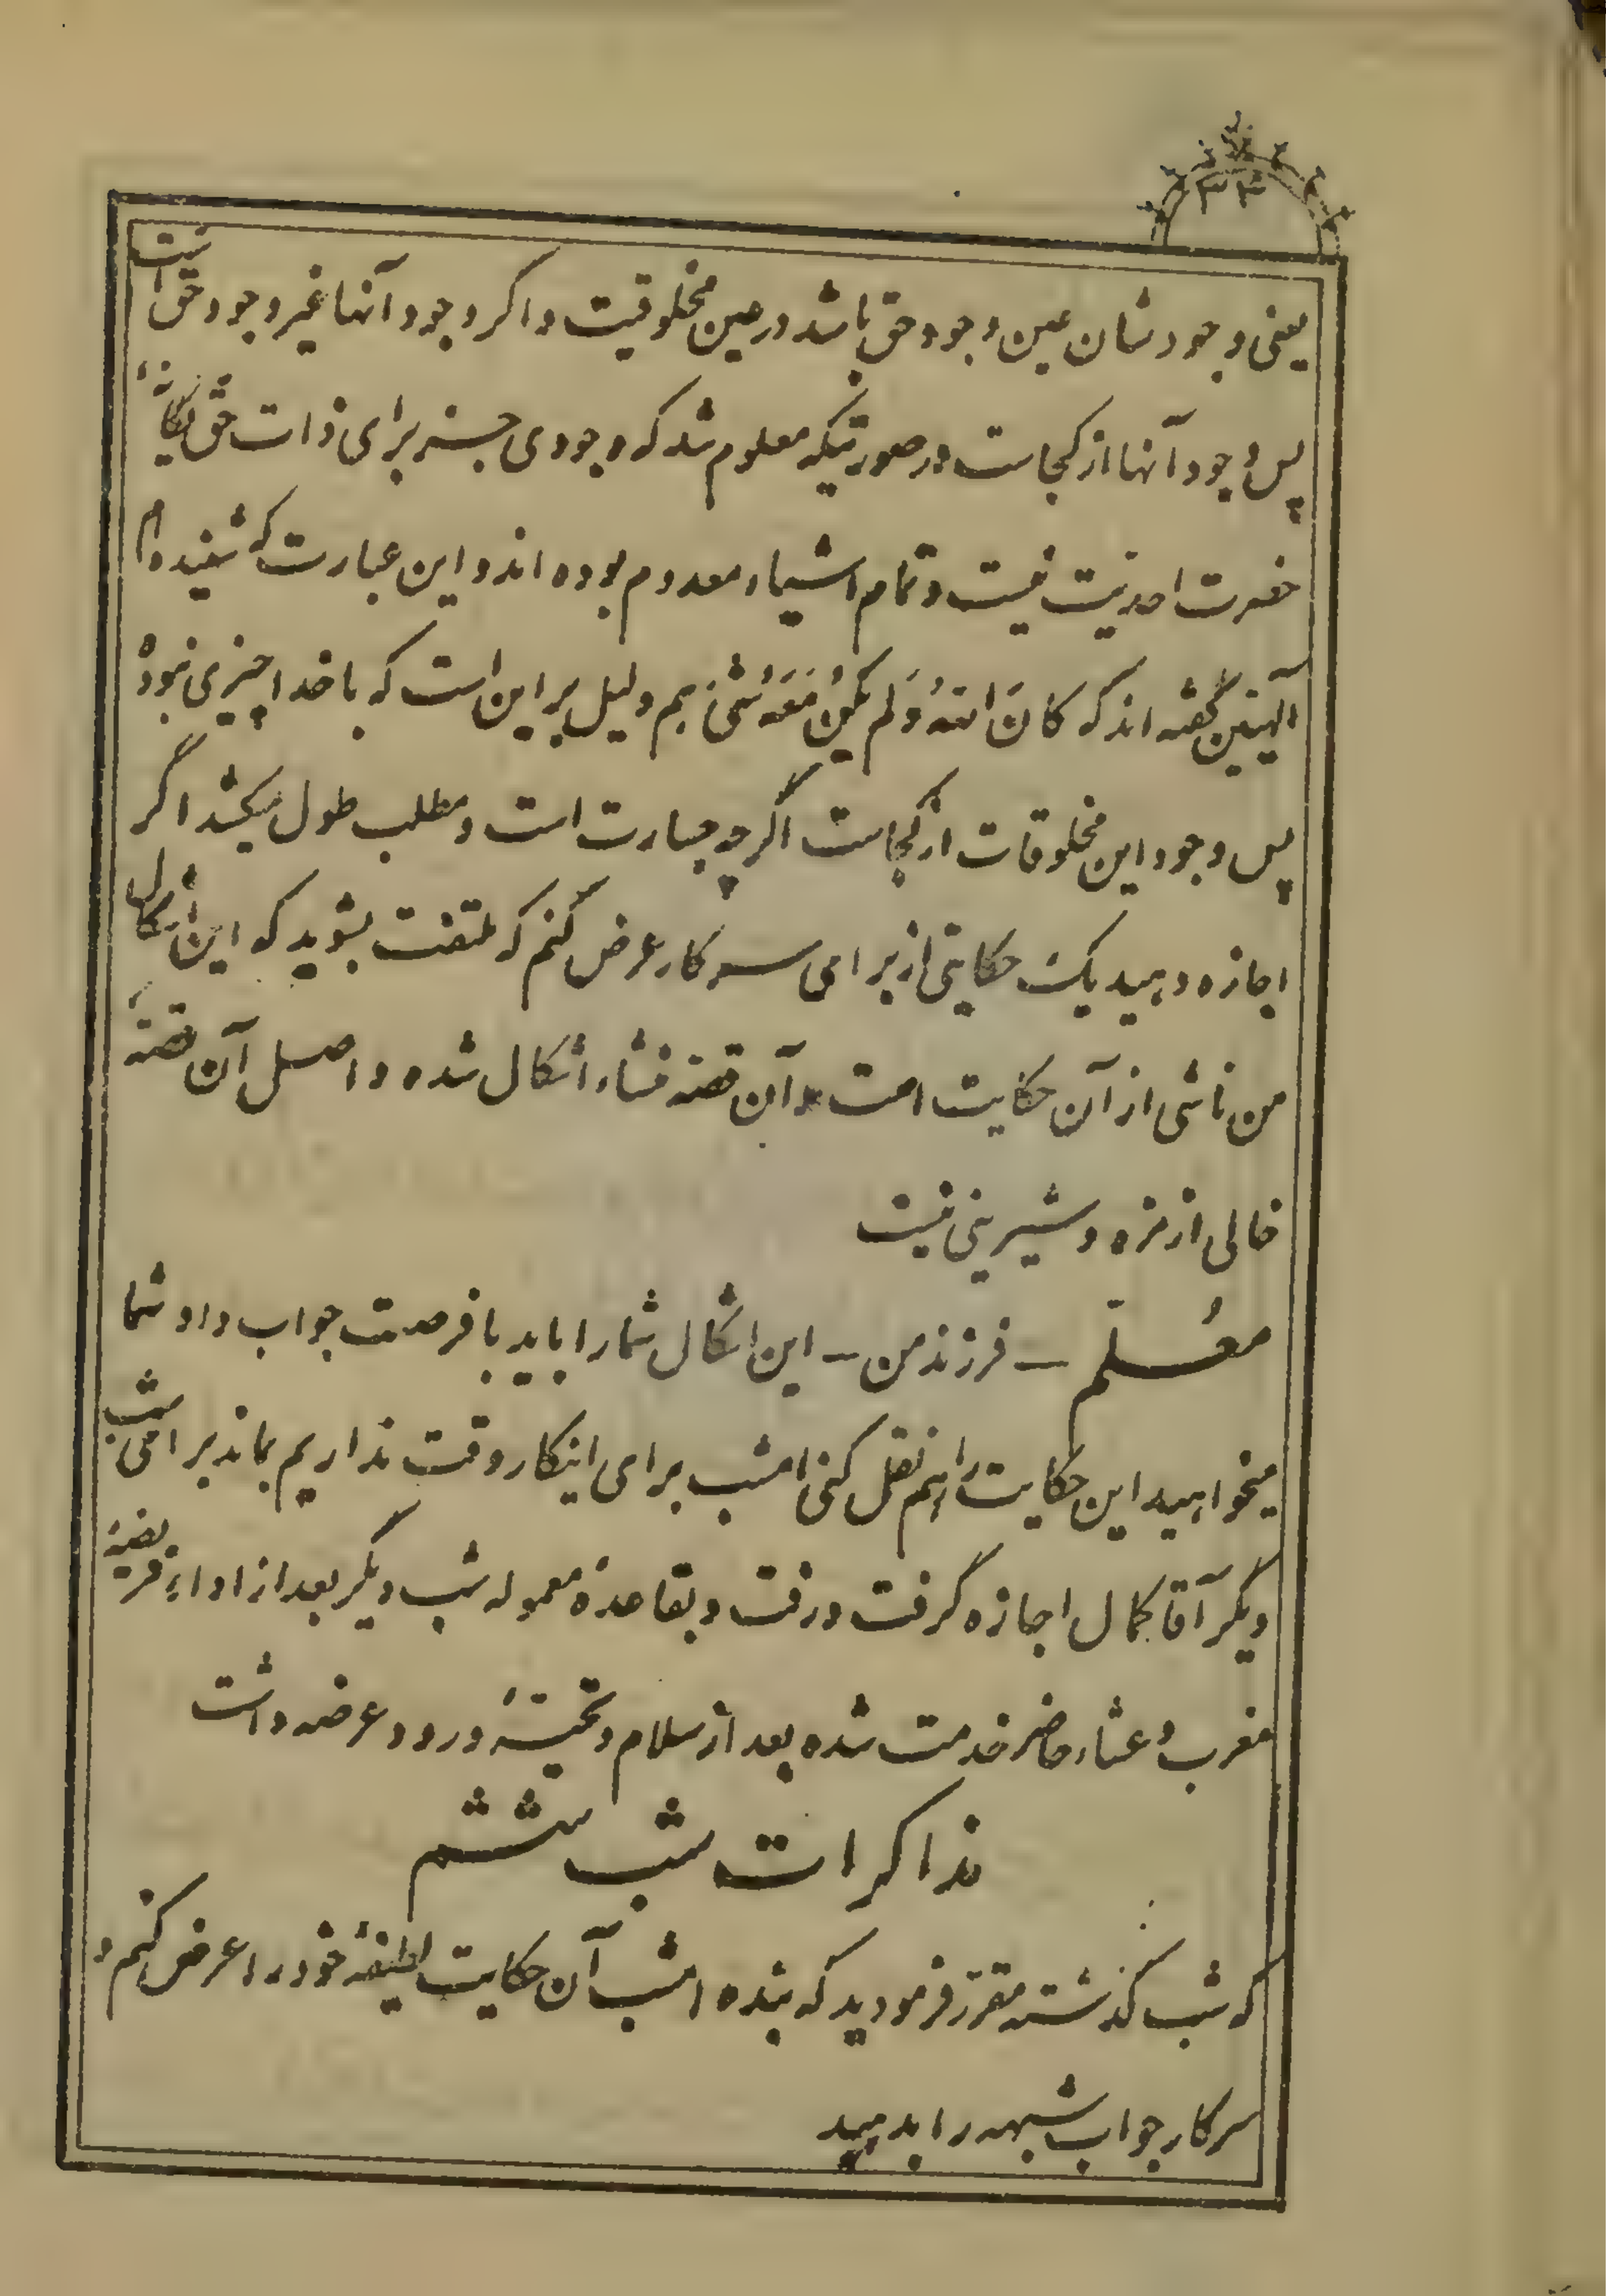 ۳۴
یعنی وجودشان عین وجود حق باشد در عین مخلوقیت و اگر وجود آنها غیر وجود حق است
پس وجود آنها از کجاست در صورتیکه معلوم شد که وجودی جز برای ذات حق یگانهٔ
حضرت احدیت نیست و تمام اشیاء معدوم بوده اند و این عبارت که شنیده‌ام
الهیین گفته اند که کانَ اللهُ وَلَم یکُن مَعَهُ شیٔ هم دلیل بر این است که با خدا چیزی نبوده
پس وجود این مخلوقات از کجاست اگرچه جسارت است و مطلب طول میکشد اگر
اجازه دهید یک حکایتی از برای سرکار عرض کنم که ملتفت بشوید که این اشکال
من ناشی از آن حکایت است و آن قصه منشاء اشکال شده و اصل آن قصهٔ
خالی از مزه و شیرینی نیست
معُلّم – فرزند من – این اشکال شما را باید با فرصت جواب داد شما
میخواهید این حکایت را هم نقل کنی امشب برای اینکار وقت نداریم بماند برای شب
دیگر آقا کمال اجازه گرفت و رفت و بقاعدهٔ معموله شب دیگر بعد از اداء فریضهٔ
مغرب و عشاء حاضر خدمت شده بعد از سلام و تحیّتهٔ ورود عرضه داشت
مذاکرات شب ششم
که شب گذشته مقرّر فرمودید که بنده امشب آن حکایت لطیفهٔ خود را عرض کنم و
سرکار جواب شبهه را بدهید